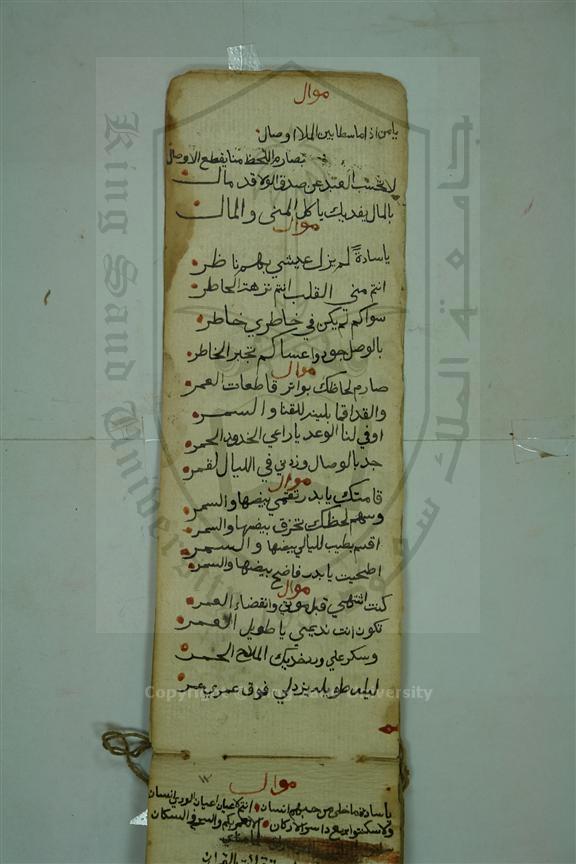 موال
يا من اذا ما سطا بين الملا اوصال
بصارم اللحظ منا يقطع الاوصال
لا تحسب العبد عن صدق الولا قد مال
بالمال يفديك يا كل المنى والمال
موال
يا سادة لم يزل عيشي بهم ناظر
انتم منى القلب انتم نزهة الخاطر
سواكم لم يكن في خاطري خاطر
بالوصل جودوا عساكم نجبر الخاطر
موال
صارم لحاظك بواتر قاطعات العمر
والقد اقبا يلين للقنا والسمر
اوفي لنا الوعد يا راعي الخدود الحمر
جد بالوصال وزرني في الليال القمر
موال
قامتك يا بدر تقمي بيضها والسمر
وسهم لحظك تخرق بيضها والسمر
اقسم بطيب لليالي بيضها والسمر
اضحيت يا بدر فاضح بيضها والسمر
موال
كنت اشتهي قبل موتي وانقضاء العمر
تكون انت نديمي يا طويل العمر
وسكر علي ويفديك الملاح الحمر
ليله طويله يزدلي فوق عمري عمر
موال
يا سادة ما خلي من حبهم انسان انتم اعيان اعيان الورى انسان
والسر في السكان
جامعة الملك سعود
King Saud University
Copyright © King Saud University